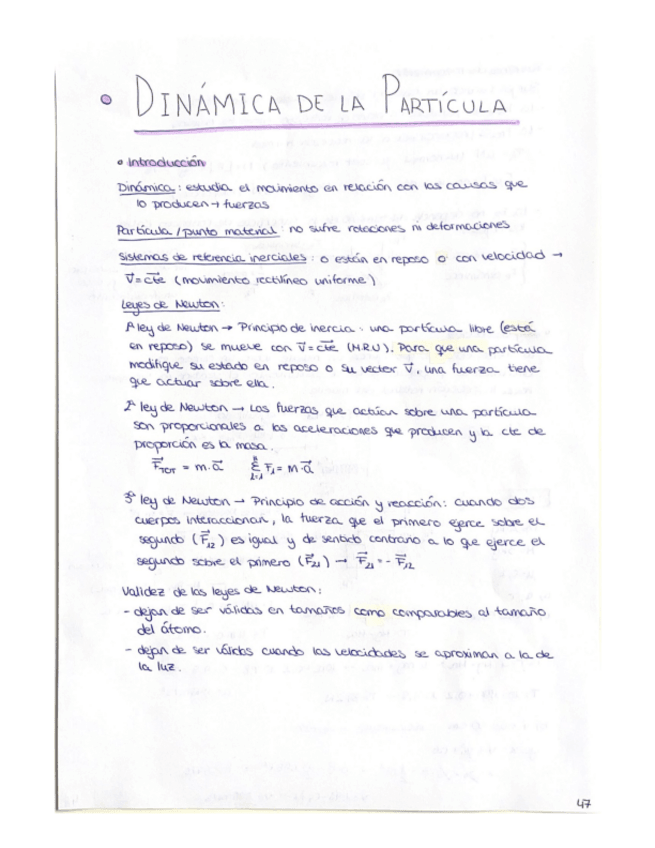 • DINÁMICA DE LA PARTÍCULA
• Introducción
Dinámica: estudia el movimiento en relación con las causas que
lo producen → fuerzas
Partícula/punto material: no sufre rotaciones ni deformaciones
Sistemas de referencia inerciales: o están en reposo o con velocidad →
V⃗=cte⃗ (movimiento rectilíneo uniforme)
Leyes de Newton:
1ª ley de Newton → Principio de inercia: una partícula libre (está
en reposo) se mueve con V⃗=cte⃗ (M.R.U). Para que una partícula
modifique su estado en reposo o su vector V⃗, una fuerza tiene
que actuar sobre ella.
2ª ley de Newton → Las fuerzas que actúan sobre una partícula
son proporcionales a las aceleraciones que producen y la cte de
proporción es la masa.
F⃗TOT = m·a⃗ Σ F⃗i = m·a⃗
3ª ley de Newton → Principio de acción y reacción: cuando dos
cuerpos interaccionan, la fuerza que el primero ejerce sobre el
segundo (F⃗12) es igual y de sentido contrario a lo que ejerce el
segundo sobre el primero (F⃗21) → F⃗21 = - F⃗12
Validez de las leyes de Newton:
- dejan de ser válidas en tamaños como comparables al tamaño
del átomo.
- dejan de ser válidas cuando las velocidades se aproximan a la de
la luz.
47